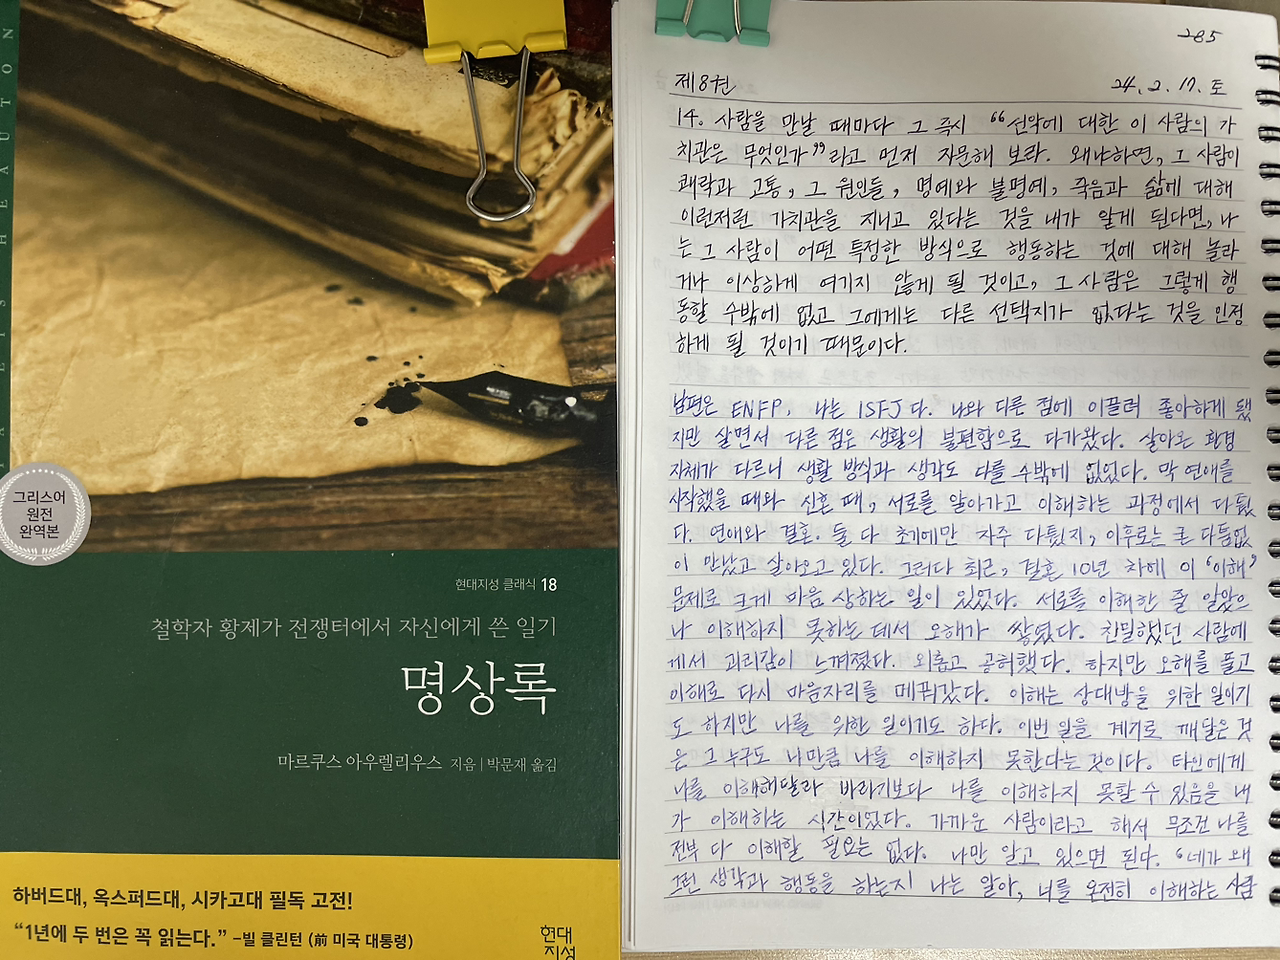 TA EIS HEAUTON
그리스어
원전
완역본
현대지성 클래식 18
철학자 황제가 전쟁터에서 자신에게 쓴 일기
명상록
마르쿠스 아우렐리우스 지음 | 박문재 옮김
하버드대, 옥스퍼드대, 시카고대 필독 고전!
“1년에 두 번은 꼭 읽는다.” –빌 클린턴 (前 미국 대통령)
현대
지성
285
제8권 24. 2. 17. 토
14. 사람을 만날 때마다 그 즉시 “선악에 대한 이 사람의 가
치관은 무엇인가”라고 먼저 자문해 보라. 왜냐하면, 그 사람이
쾌락과 고통, 그 원인들, 명예와 불명예, 죽음과 삶에 대해
이런저런 가치관을 지니고 있다는 것을 내가 알게 된다면, 나
는 그 사람이 어떤 특정한 방식으로 행동하는 것에 대해 놀라
거나 이상하게 여기지 않게 될 것이고, 그 사람은 그렇게 행
동할 수밖에 없고 그에게는 다른 선택지가 없다는 것을 인정
하게 될 것이기 때문이다.
남편은 ENFP, 나는 ISFJ다. 나와 다른 점에 이끌려 좋아하게 됐
지만 살면서 다른 점은 생활의 불편함으로 다가왔다. 살아온 환경
자체가 다르니 생활 방식과 생각도 다를 수밖에 없었다. 막 연애를
시작했을 때와 신혼 때, 서로를 알아가고 이해하는 과정에서 다퉜
다. 연애와 결혼. 둘 다 초기에만 자주 다퉜지, 이후로는 큰 다툼없
이 만났고 살아오고 있다. 그러다 최근, 결혼 10년 차에 이 ‘이해’
문제로 크게 마음 상하는 일이 있었다. 서로를 이해한 줄 알았으
나 이해하지 못하는 데서 오해가 쌓였다. 친밀했던 사람에
게서 괴리감이 느껴졌다. 외롭고 공허했다. 하지만 오해를 풀고
이해로 다시 마음자리를 메꿔갔다. 이해는 상대방을 위한 일이기
도 하지만 나를 위한 일이기도 하다. 이번 일을 계기로 깨달은 것
은 그 누구도 나만큼 나를 이해하지 못한다는 것이다. 타인에게
나를 이해해달라 바라기보다 나를 이해하지 못할 수 있음을 내
가 이해하는 시간이었다. 가까운 사람이라고 해서 무조건 나를
전부 다 이해할 필요는 없다. 나만 알고 있으면 된다. “네가 왜
그런 생각과 행동을 하는지 나는 알아, 너를 온전히 이해하는 사람